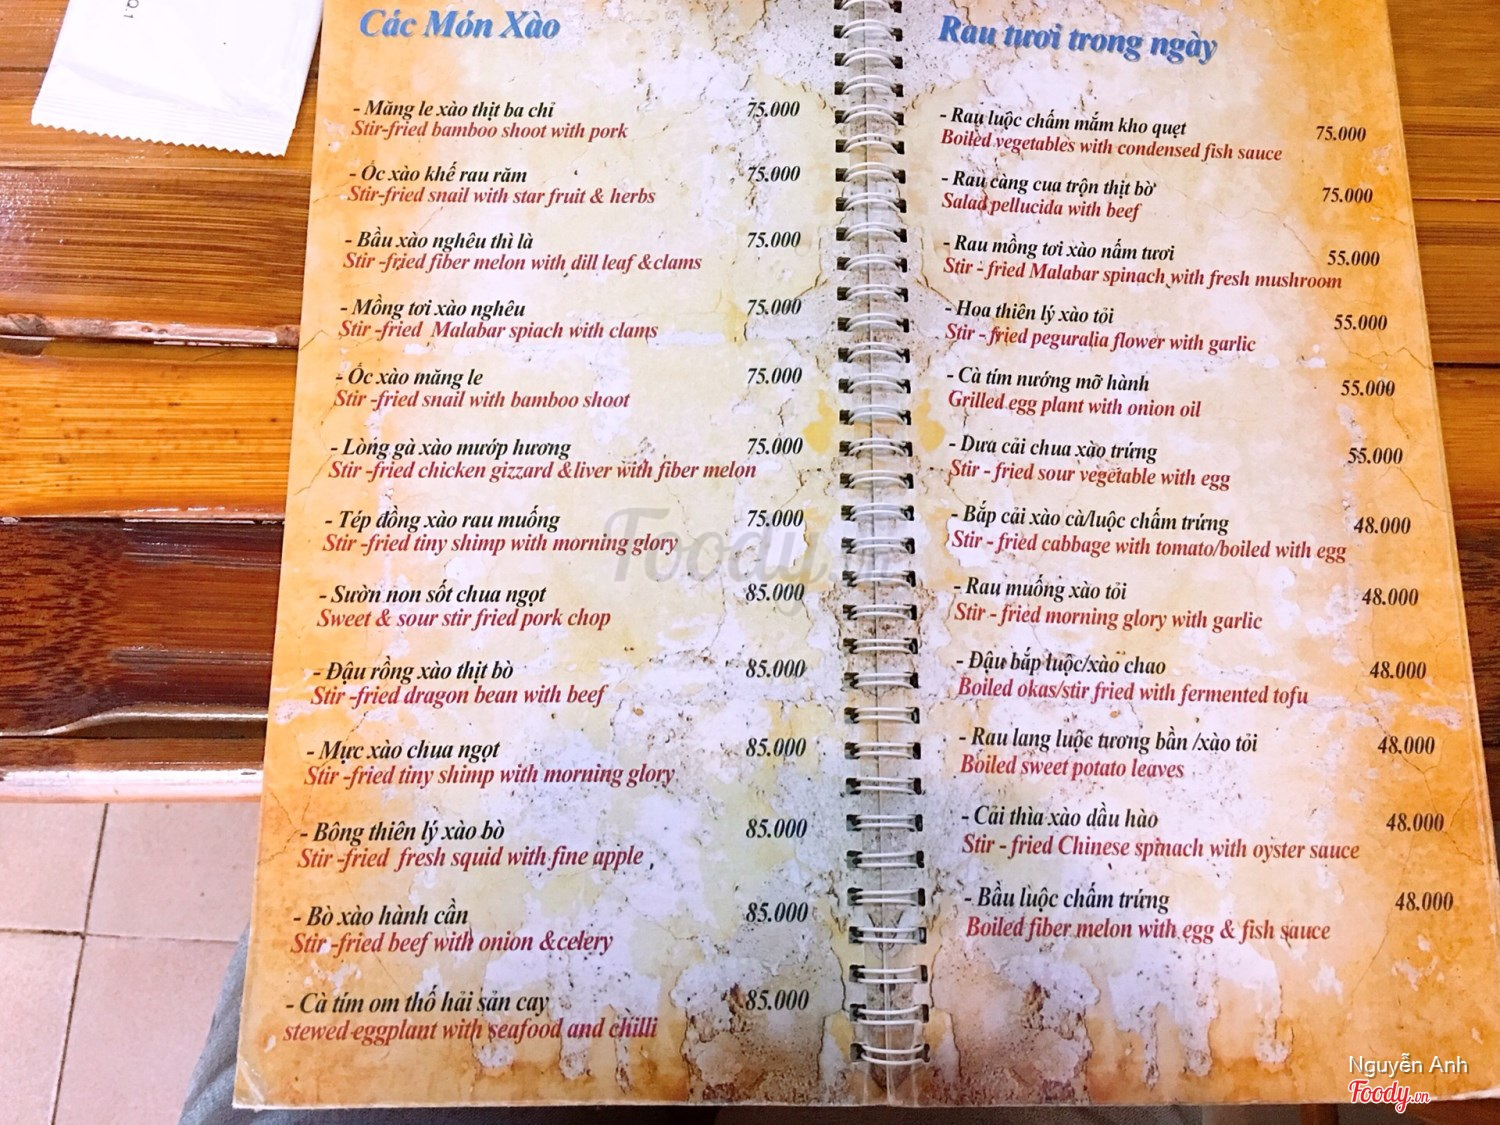 Q.1
Các Món Xào
- Măng le xào thịt ba chỉ 75.000
Stir-fried bamboo shoot with pork
- Ốc xào khế rau răm 75.000
Stir-fried snail with star fruit & herbs
- Bầu xào nghêu thì là 75.000
Stir -fried fiber melon with dill leaf &clams
- Mồng tơi xào nghêu 75.000
Stir -fried Malabar spiach with clams
- Ốc xào măng le 75.000
Stir -fried snail with bamboo shoot
- Lòng gà xào mướp hương 75.000
Stir -fried chicken gizzard &liver with fiber melon
- Tép đồng xào rau muống 75.000
Stir -fried tiny shimp with morning glory
- Sườn non sốt chua ngọt 85.000
Sweet & sour stir fried pork chop
- Đậu rồng xào thịt bò 85.000
Stir -fried dragon bean with beef
- Mực xào chua ngọt 85.000
Stir -fried tiny shimp with morning glory
- Bông thiên lý xào bò 85.000
Stir -fried fresh squid with fine apple
- Bò xào hành cần 85.000
Stir -fried beef with onion &celery
- Cà tím om thố hải sản cay 85.000
stewed eggplant with seafood and chilli
Rau tươi trong ngày
- Rau luộc chấm mắm kho quẹt 75.000
Boiled vegetables with condensed fish sauce
- Rau càng cua trộn thịt bò 75.000
Salad pellucida with beef
- Rau mồng tơi xào nấm tươi 55.000
Stir - fried Malabar spinach with fresh mushroom
- Hoa thiên lý xào tỏi 55.000
Stir - fried peguralia flower with garlic
- Cà tím nướng mỡ hành 55.000
Grilled egg plant with onion oil
- Dưa cải chua xào trứng 55.000
Stir - fried sour vegetable with egg
- Bắp cải xào cà/luộc chấm trứng 48.000
Stir - fried cabbage with tomato/boiled with egg
- Rau muống xào tỏi 48.000
Stir - fried morning glory with garlic
- Đậu bắp luộc/xào chao 48.000
Boiled okas/stir fried with fermented tofu
- Rau lang luộc tương bần /xào tỏi 48.000
Boiled sweet potato leaves
- Cải thìa xào dầu hào 48.000
Stir - fried Chinese spinach with oyster sauce
- Bầu luộc chấm trứng 48.000
Boiled fiber melon with egg & fish sauce
Foody.vn
Nguyễn Anh
Foody.vn